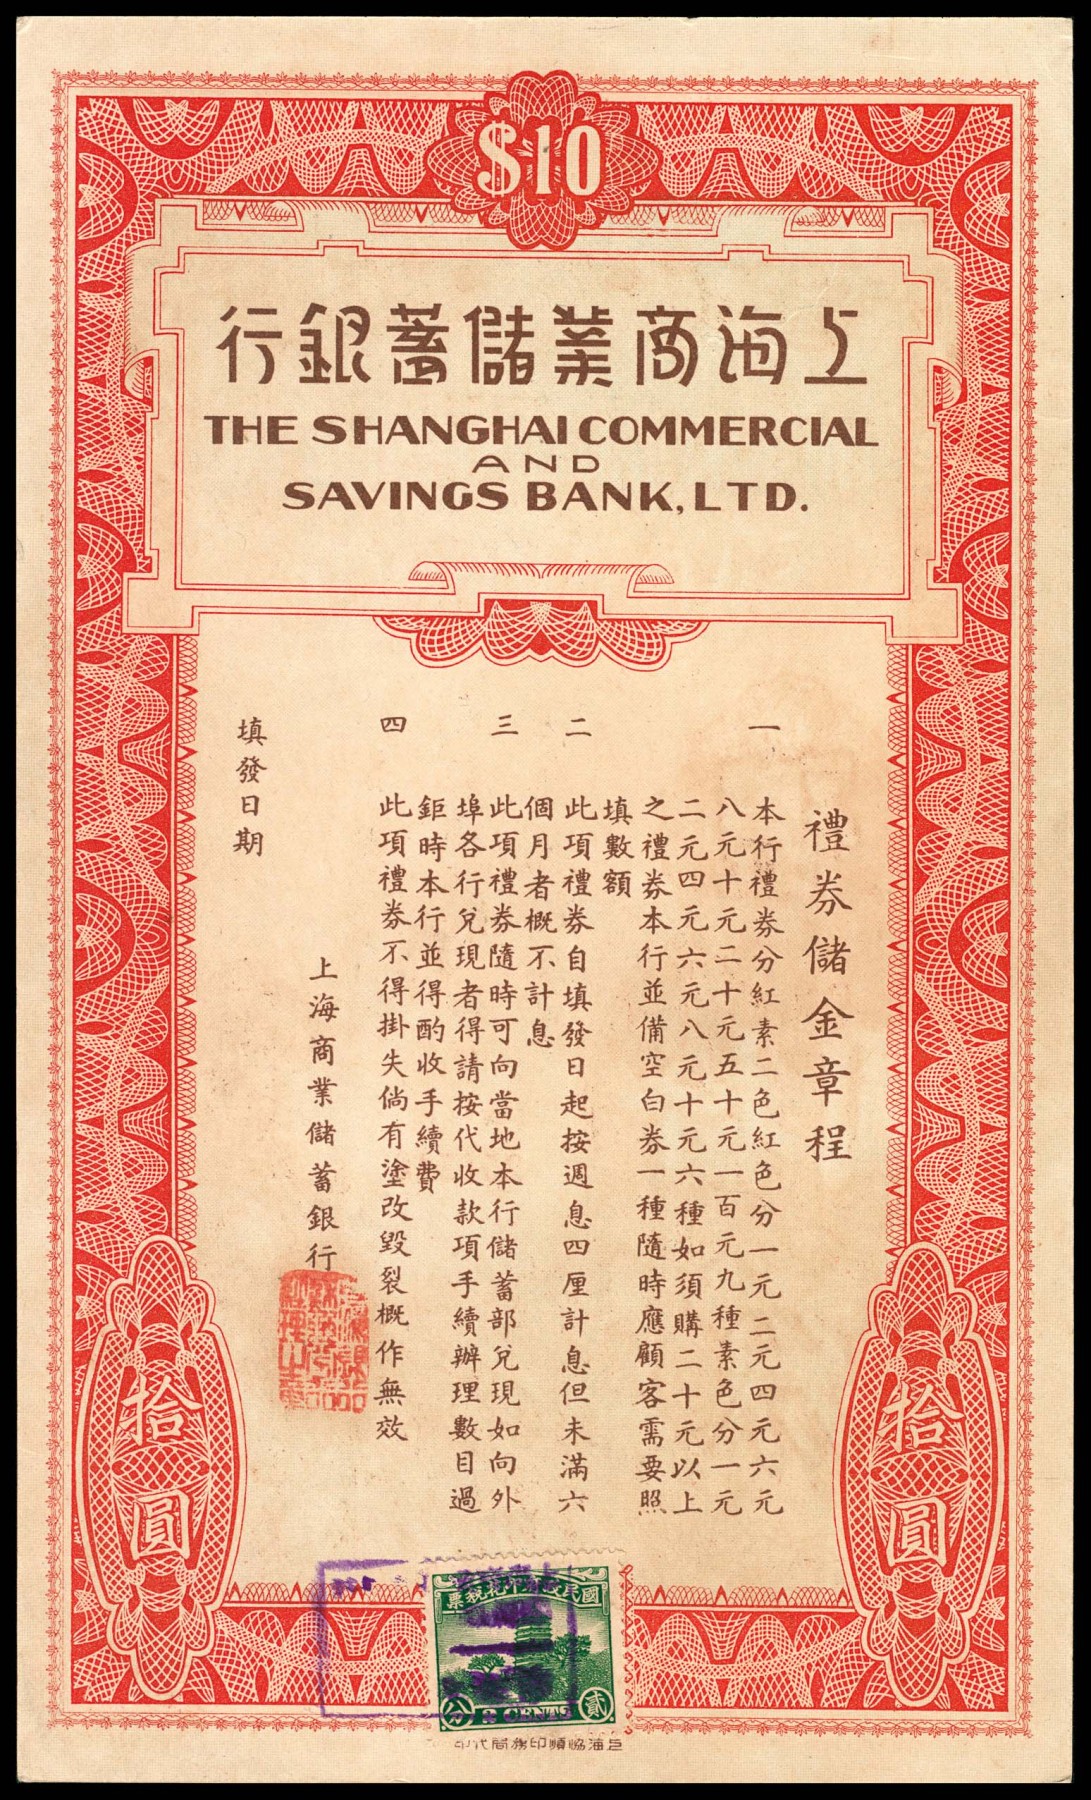 $10
上海商業儲蓄銀行
THE SHANGHAI COMMERCIAL
AND
SAVINGS BANK, LTD.
禮券儲金章程
一 本行禮券分紅素二色紅色分一元二元四元六元
八元十元二十元五十元一百元九種素色分一元
二元四元六元八元十元六種如須購二十元以上
之禮券本行並備空白券一種隨時應顧客需要照
填數額
二 此項禮券自填發日起按週息四厘計息但未滿六
個月者概不計息
三 此項禮券隨時可向當地本行儲蓄部兌現如向外
埠各行兌現者得請按代收款項手續辦理數目過
鉅時本行並得酌收手續費
四 此項禮券不得掛失倘有塗改毀裂概作無效
上海商業儲蓄銀行
填發日期
拾圓
拾圓
國民政府印花稅票
貳分
2 CENTS